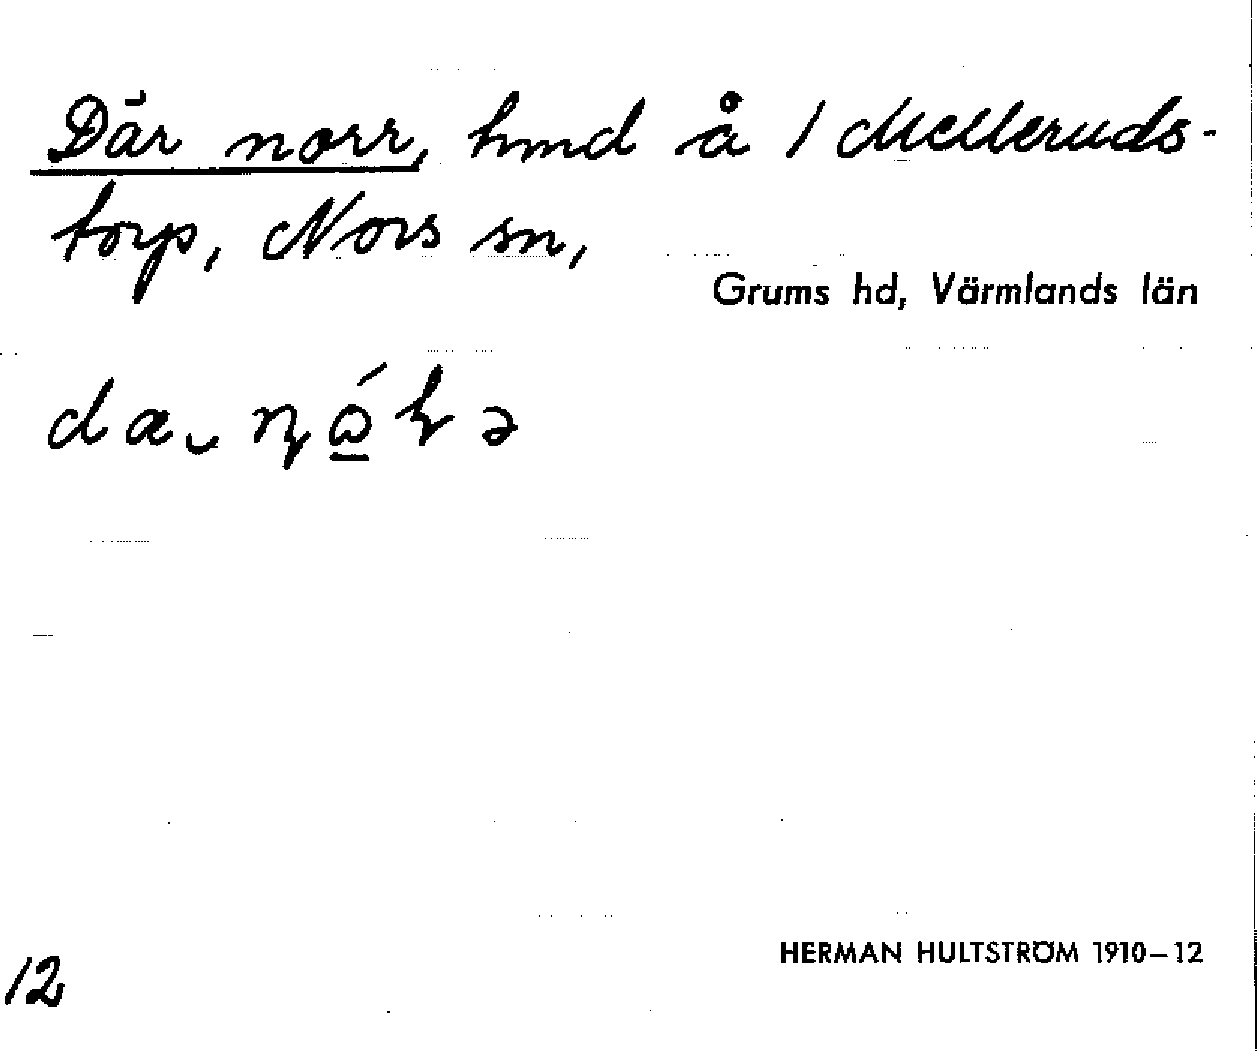 Där norr, hmd å 1 Melleruds-
torp, Nors sn,
Grums hd, Värmlands län
HERMAN HULTSTRÖM 1910–12
12